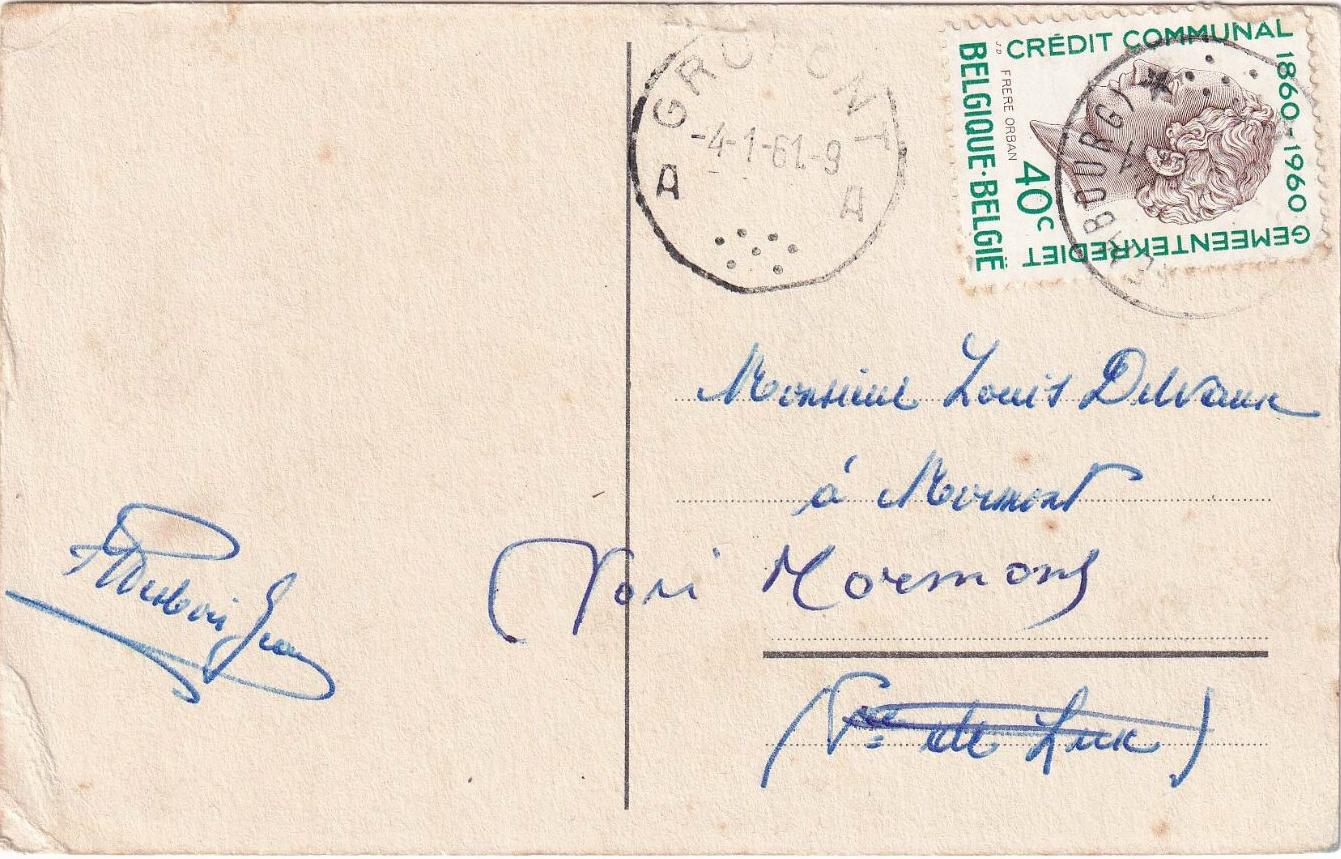 GRUPONT
-4-1-61.-9
A A
CRÉDIT COMMUNAL
1860-1960
GEMEENTEKREDIET
BELGIQUE·BELGIË
FRERE ORBAN
J.D
40c
Monsieur Louis Delvaux
à Mormont
Mormont
(Pce de Lux)